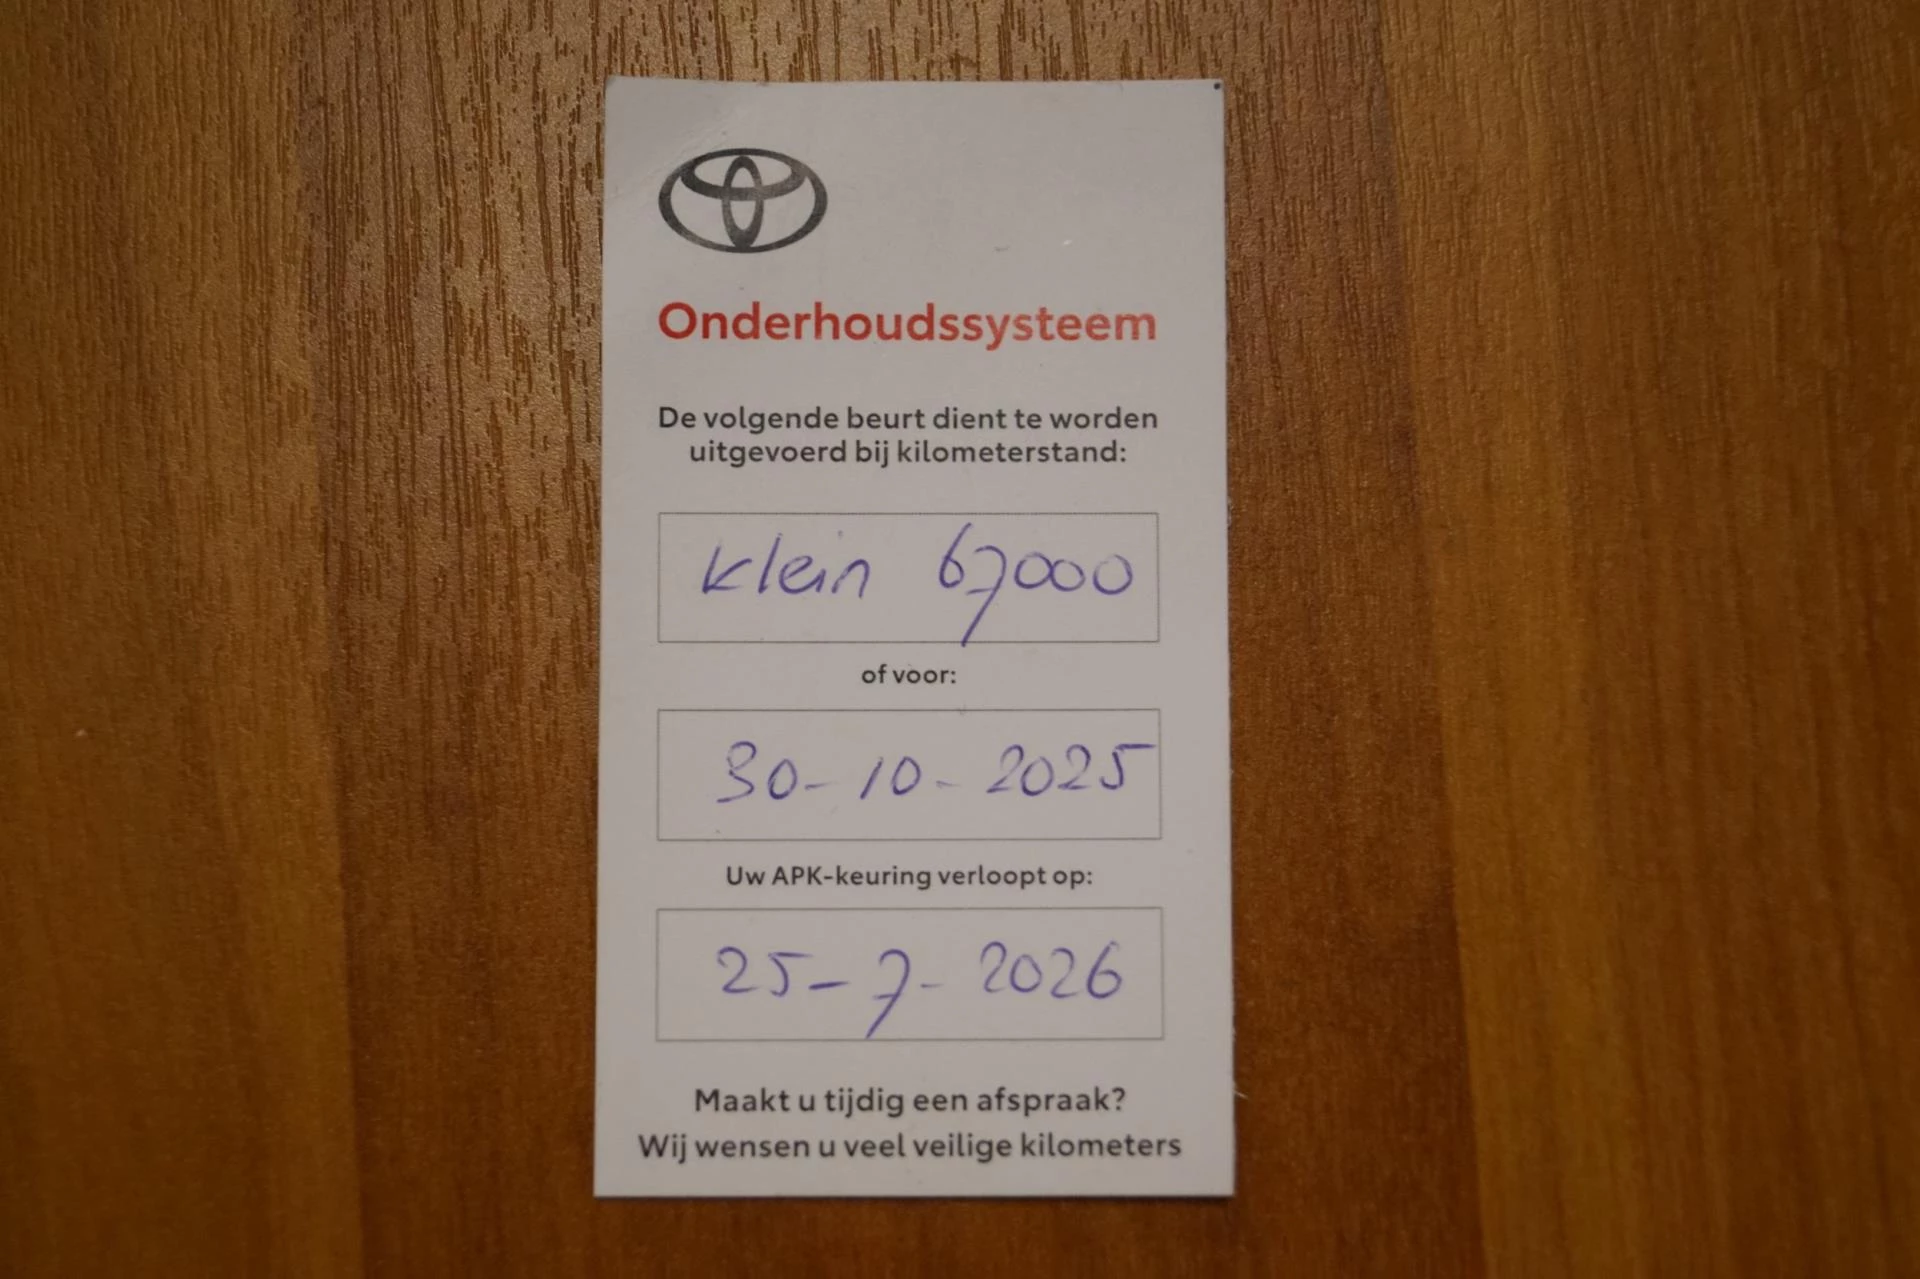 Onderhoudssysteem
De volgende beurt dient te worden
uitgevoerd bij kilometerstand:
klein 67000
of voor:
30-10-2025
Uw APK-keuring verloopt op:
25-7-2026
Maakt u tijdig een afspraak?
Wij wensen u veel veilige kilometers